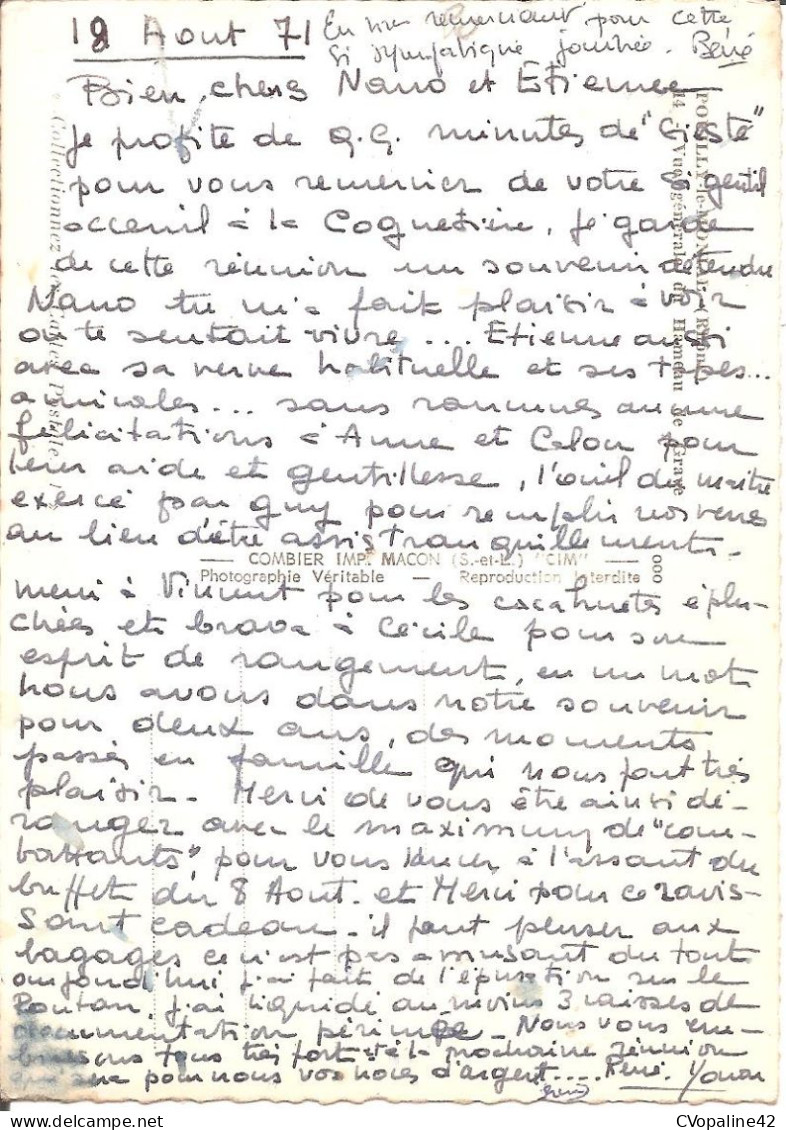 18 Aout 71
En vous remerciant pour cette
si sympatique journée. Béné
Bien, chers Nano et Etienne
Je profite de q.q. minutes de "sieste"
pour vous remercier de votre si gentil
acceuil à la Coquetière, je garde
de cette réunion un souvenir détendu
Nano tu m'a fait plaisir à voir
on te sentait vivre... Etienne aussi
avec sa verve habituelle et ses tapes...
amicales... sans rancunes aucune
félicitations à Anne et pour
leur aide et gentillesse, l'oeil du maitre
exercé par guy pour remplir nos verres
au lieu d'être assis tranquillement.
merci à Vincent pour les cacahuetes éplu-
chées et bravo à Cécile pour son
esprit de rangement, en un mot
nous avons dans notre souvenir
pour deux ans, des moments
passés en famille qui nous font très
plaisir. Merci de vous être ainsi dé-
ranger avec le maximum de "com-
battants", pour vous à l'assaut du
buffet du 8 Aout. et Merci pour ce ravis-
sant cadeau. il faut penser aux
bagages ce n'est pas amusant du tout
aujourd'hui j'ai fait de l'épuration sur le
j'ai liquidé au moins 3 caisses de
documentation périmée. Nous vous em-
brassons tous très fort et à la prochaine réunion
qui sera pour nous vos noces d'argent.... René. Yvon
POUILLY-le-MONIAL (Rhône)
14 - Vue générale du Hameau de Grave
Collectionnez les Cartes Postales
COMBIER IMP. MACON (S.-et-L.) "CIM"
Photographie Véritable — Reproduction Interdite
000
CVopaline42